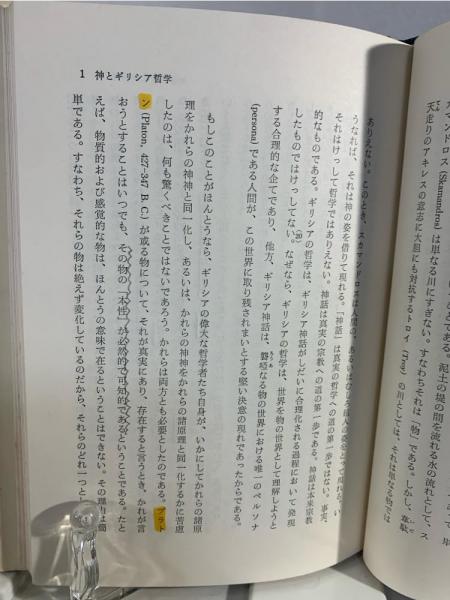 天走りのアキレスの意志に大胆にも対抗するトロイ (Troy) の川としては、それは単なる物では
マンドロス (Skamandros) は単なる川にすぎない。すなわちそれは「物」である。しかし、韋駄
ことである。泥土の堤の間を流れる水の流れとして、ス
1 神とギリシア哲学
ありえない。このとき、スカマンドロスは人間の、あるいは
うなれば、それは神の姿を借りて現れる。「神話」は真実の哲学への道の第一歩ではない。事実、
それはけっして哲学ではありえない。神話は真実の宗教への道の第一歩である。神話は本来宗教
的なものである。ギリシアの哲学は、ギリシア神話がしだいに合理化される過程において発現
したものではけっしてない。(20)なぜなら、ギリシアの哲学は、世界を物の世界として理解しようと
する合理的な企てであり、他方、ギリシア神話は、聾唖なる物の世界における唯一のペルソナ
(persona) である人間が、この世界に取り残されまいとする堅い決意の現れであったからである。
もしこのことがほんとうなら、ギリシアの偉大な哲学者たち自身が、いかにしてかれらの諸原
理をかれらの神神と同一化し、あるいは、かれらの神神をかれらの諸原理と同一化するかに苦慮
したのは、何も驚くべきことではないであろう。かれらは両方とも必要としたのである。プラト
ン (Platon, 427-347 B. C.) が或る物について、それが真実にあり、存在すると言うとき、かれが言
おうとすることはいつでも、その物の「本性」が必然的で可知的であるということである。たと
えば、物質的および感覚的な物は、ほんとうの意味で在るということはできない。その理由は簡
単である。すなわち、それらの物は絶えず変化しているのだから、それらのどれ一つと